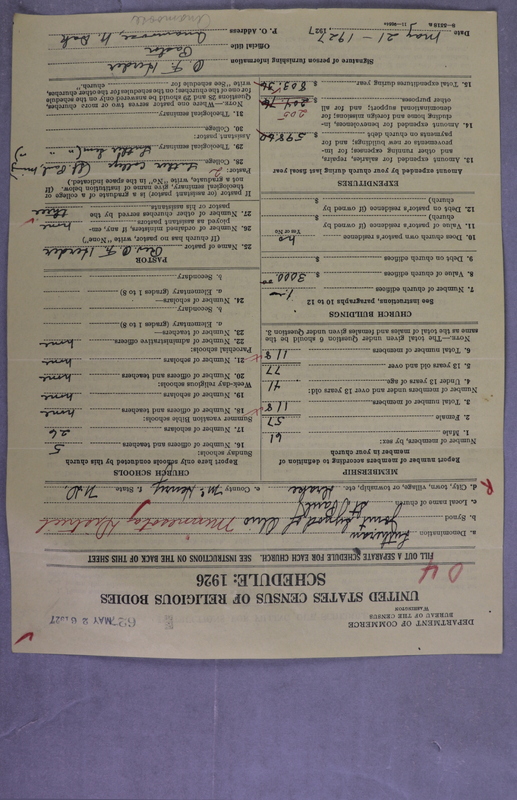 DEPARTMENT OF COMMERCE
BUREAU OF THE CENSUS
WASHINGTON
MAY 26 1927
UNITED STATES CENSUS OF RELIGIOUS BODIES
SCHEDULE: 1926
FILL OUT A SEPARATE SCHEDULE FOR EACH CHURCH. SEE INSTRUCTIONS ON THE BACK OF THIS SHEET
a. Denomination Lutheran
b. Synod Joint Synod of Ohio Minnesota District
c. Local name of church St Pauls
d. City, town, village, or township, etc. Drake e. County McHenry f. State N.D.
MEMBERSHIP
Report number of members according to definition of member in your church
Number of members, by sex:
1. Male 61
2. Female 57
3. Total number of members 118
Number of members under and over 13 years old:
4. Under 13 years of age 41
5. 13 years old and over 77
6. Total number of members 118
NOTE.—The total given under Question 6 should be the same as the total of males and females given under Question 3.
CHURCH BUILDINGS
See instructions, paragraphs 10 to 12
7. Number of church edifices 1
8. Value of church edifices $ 3000.00
9. Debt on church edifices $
10. Does church own pastor's residence no
Yes or No
11. Value of pastor's residence (if owned by church) $
12. Debt on pastor's residence (if owned by church) $
EXPENDITURES
Amount expended by your church during last fiscal year
13. Amount expended for salaries, repairs, and other running expenses; for improvements or new buildings; and for payments on church debt $
14. Amount expended for benevolences, including home and foreign missions; for denominational support; and for all other purposes $ 205
15. Total expenditures during year $
CHURCH SCHOOLS
Report here only schools conducted by this church
Sunday schools:
16. Number of officers and teachers 5
17. Number of scholars 26
Summer vacation Bible schools:
18. Number of officers and teachers none
19. Number of scholars
Week-day religious schools:
20. Number of officers and teachers none
21. Number of scholars none
Parochial schools:
22. Number of administrative officers none
23. Number of teachers—
a. Elementary (grades 1 to 8)
b. Secondary
24. Number of scholars—
a. Elementary (grades 1 to 8)
b. Secondary
PASTOR
25. Name of pastor Rev. O. F. Herder
(If church has no pastor, write "None")
26. Number of ordained ministers, if any, employed as assistant pastors none
27. Number of other churches served by the pastor or his assistants three
If pastor (or assistant pastor) is a graduate of a college or theological seminary, give name of institution below. (If not a graduate, write "No" in the space indicated.)
Pastor:
28. College Luther College (St Paul, Minn)
29. Theological seminary Luther Sem
Assistant pastor:
30. College
31. Theological seminary
NOTE.—Where one pastor serves two or more churches, Questions 28 and 29 should be answered only on the schedule for one of the churches; on the schedules for the other churches, write "See schedule for church."
O. F. Herder
Signature of person furnishing information
Official title Pastor
P. O. Address Anamoose, N. Dak
Anamoose
Date May 21 - 1927 1927